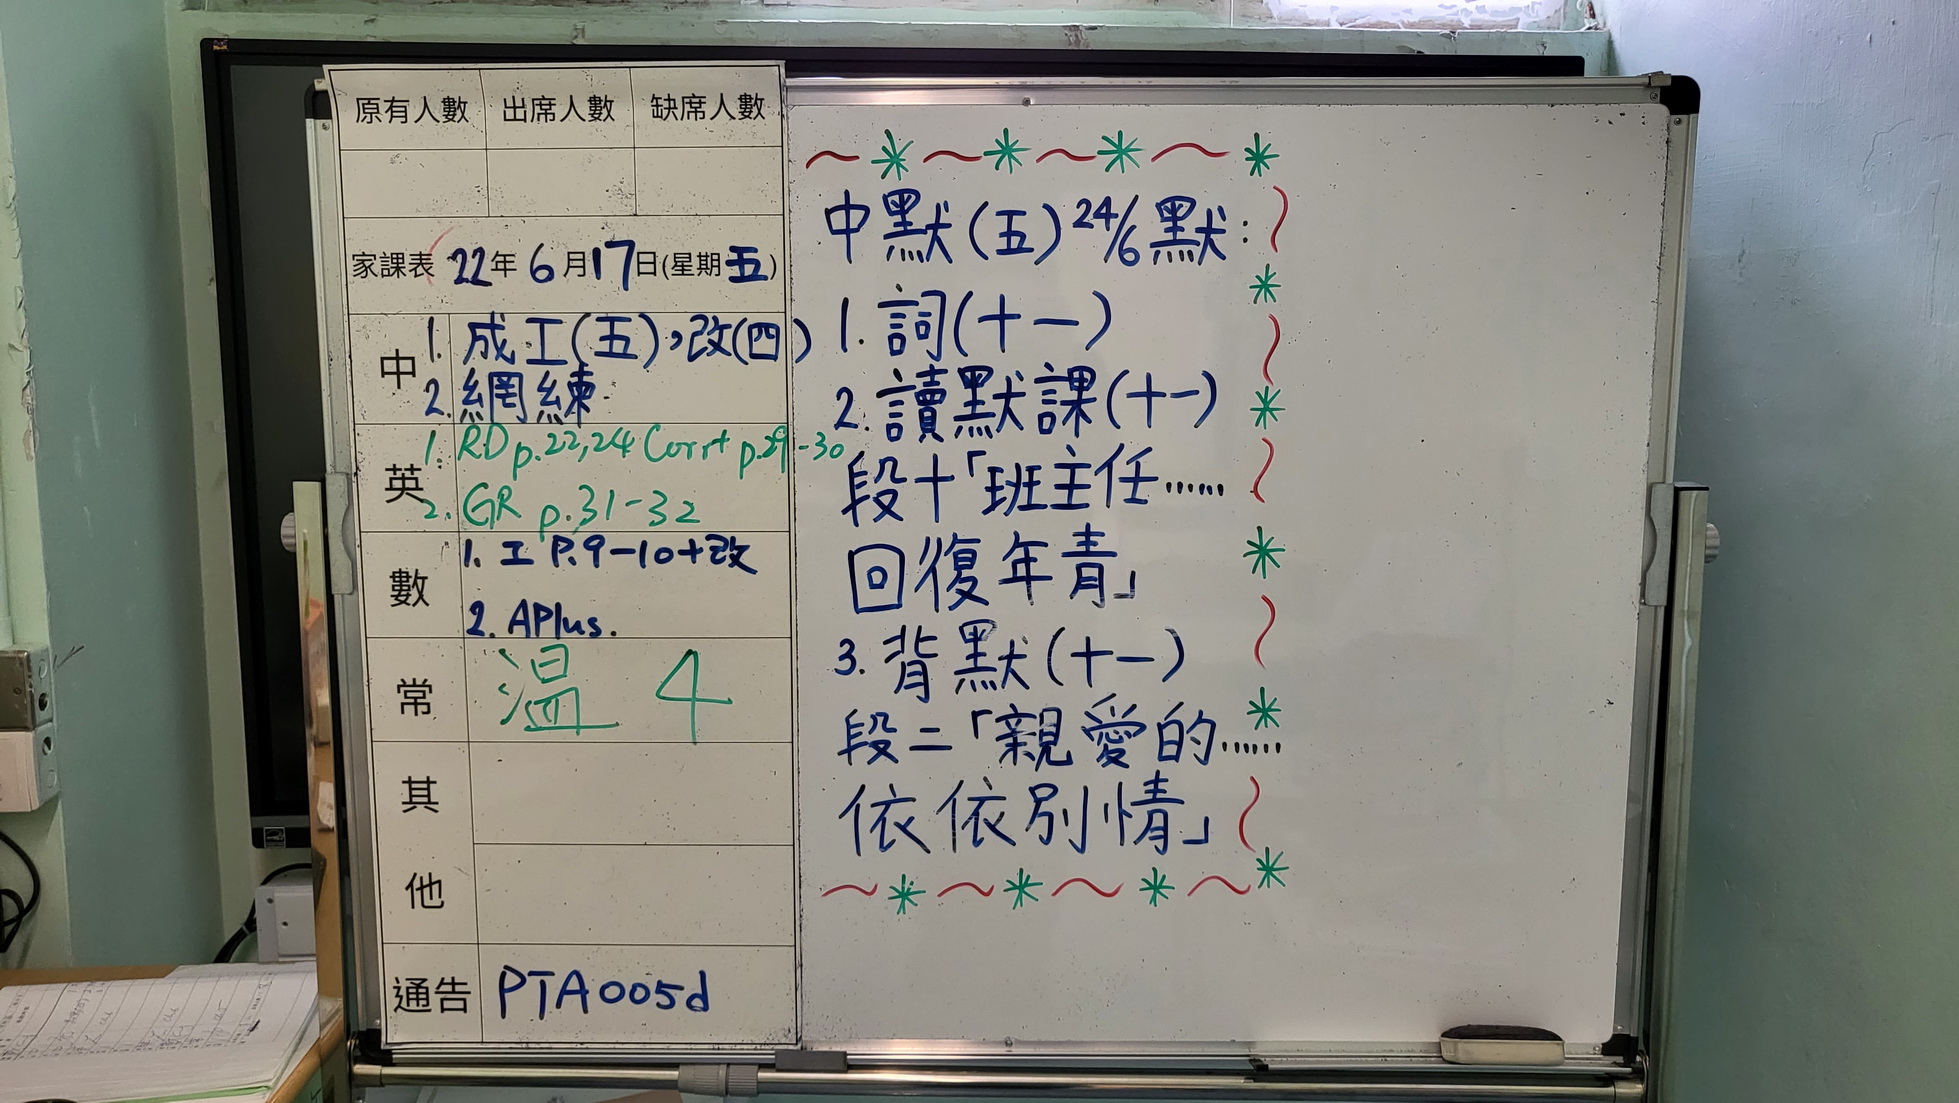 原有人數 出席人數 缺席人數
家課表 22年6月17日(星期五)
中
1. 成工(五),改(四)
2. 網練
英
1. RD p.22,24 Corr+ p.29-30
2. GR p.31-32
數
1. 工 P.9-10+改
2. APlus.
常
溫 4
其他
通告 PTA005d
中默(五) 24/6 默:
1. 詞(十一)
2. 讀默課(十一)
段十「班主任……
回復年青」
3. 背默(十一)
段二「親愛的……
依依別情」